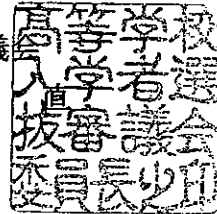 高等学校
入学者選
抜審議会
委員長之印
直